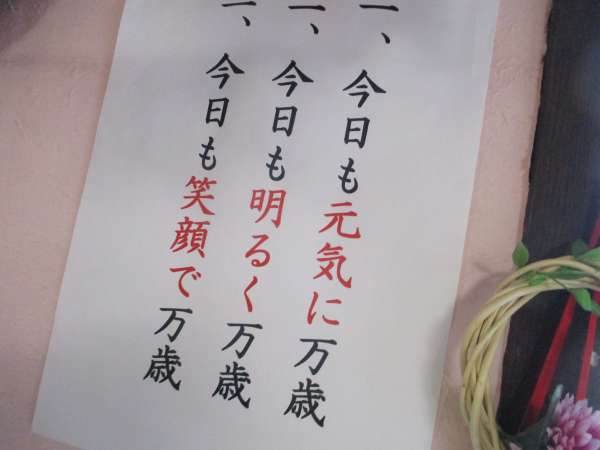 一、今日も元気に万歳
一、今日も明るく万歳
一、今日も笑顔で万歳